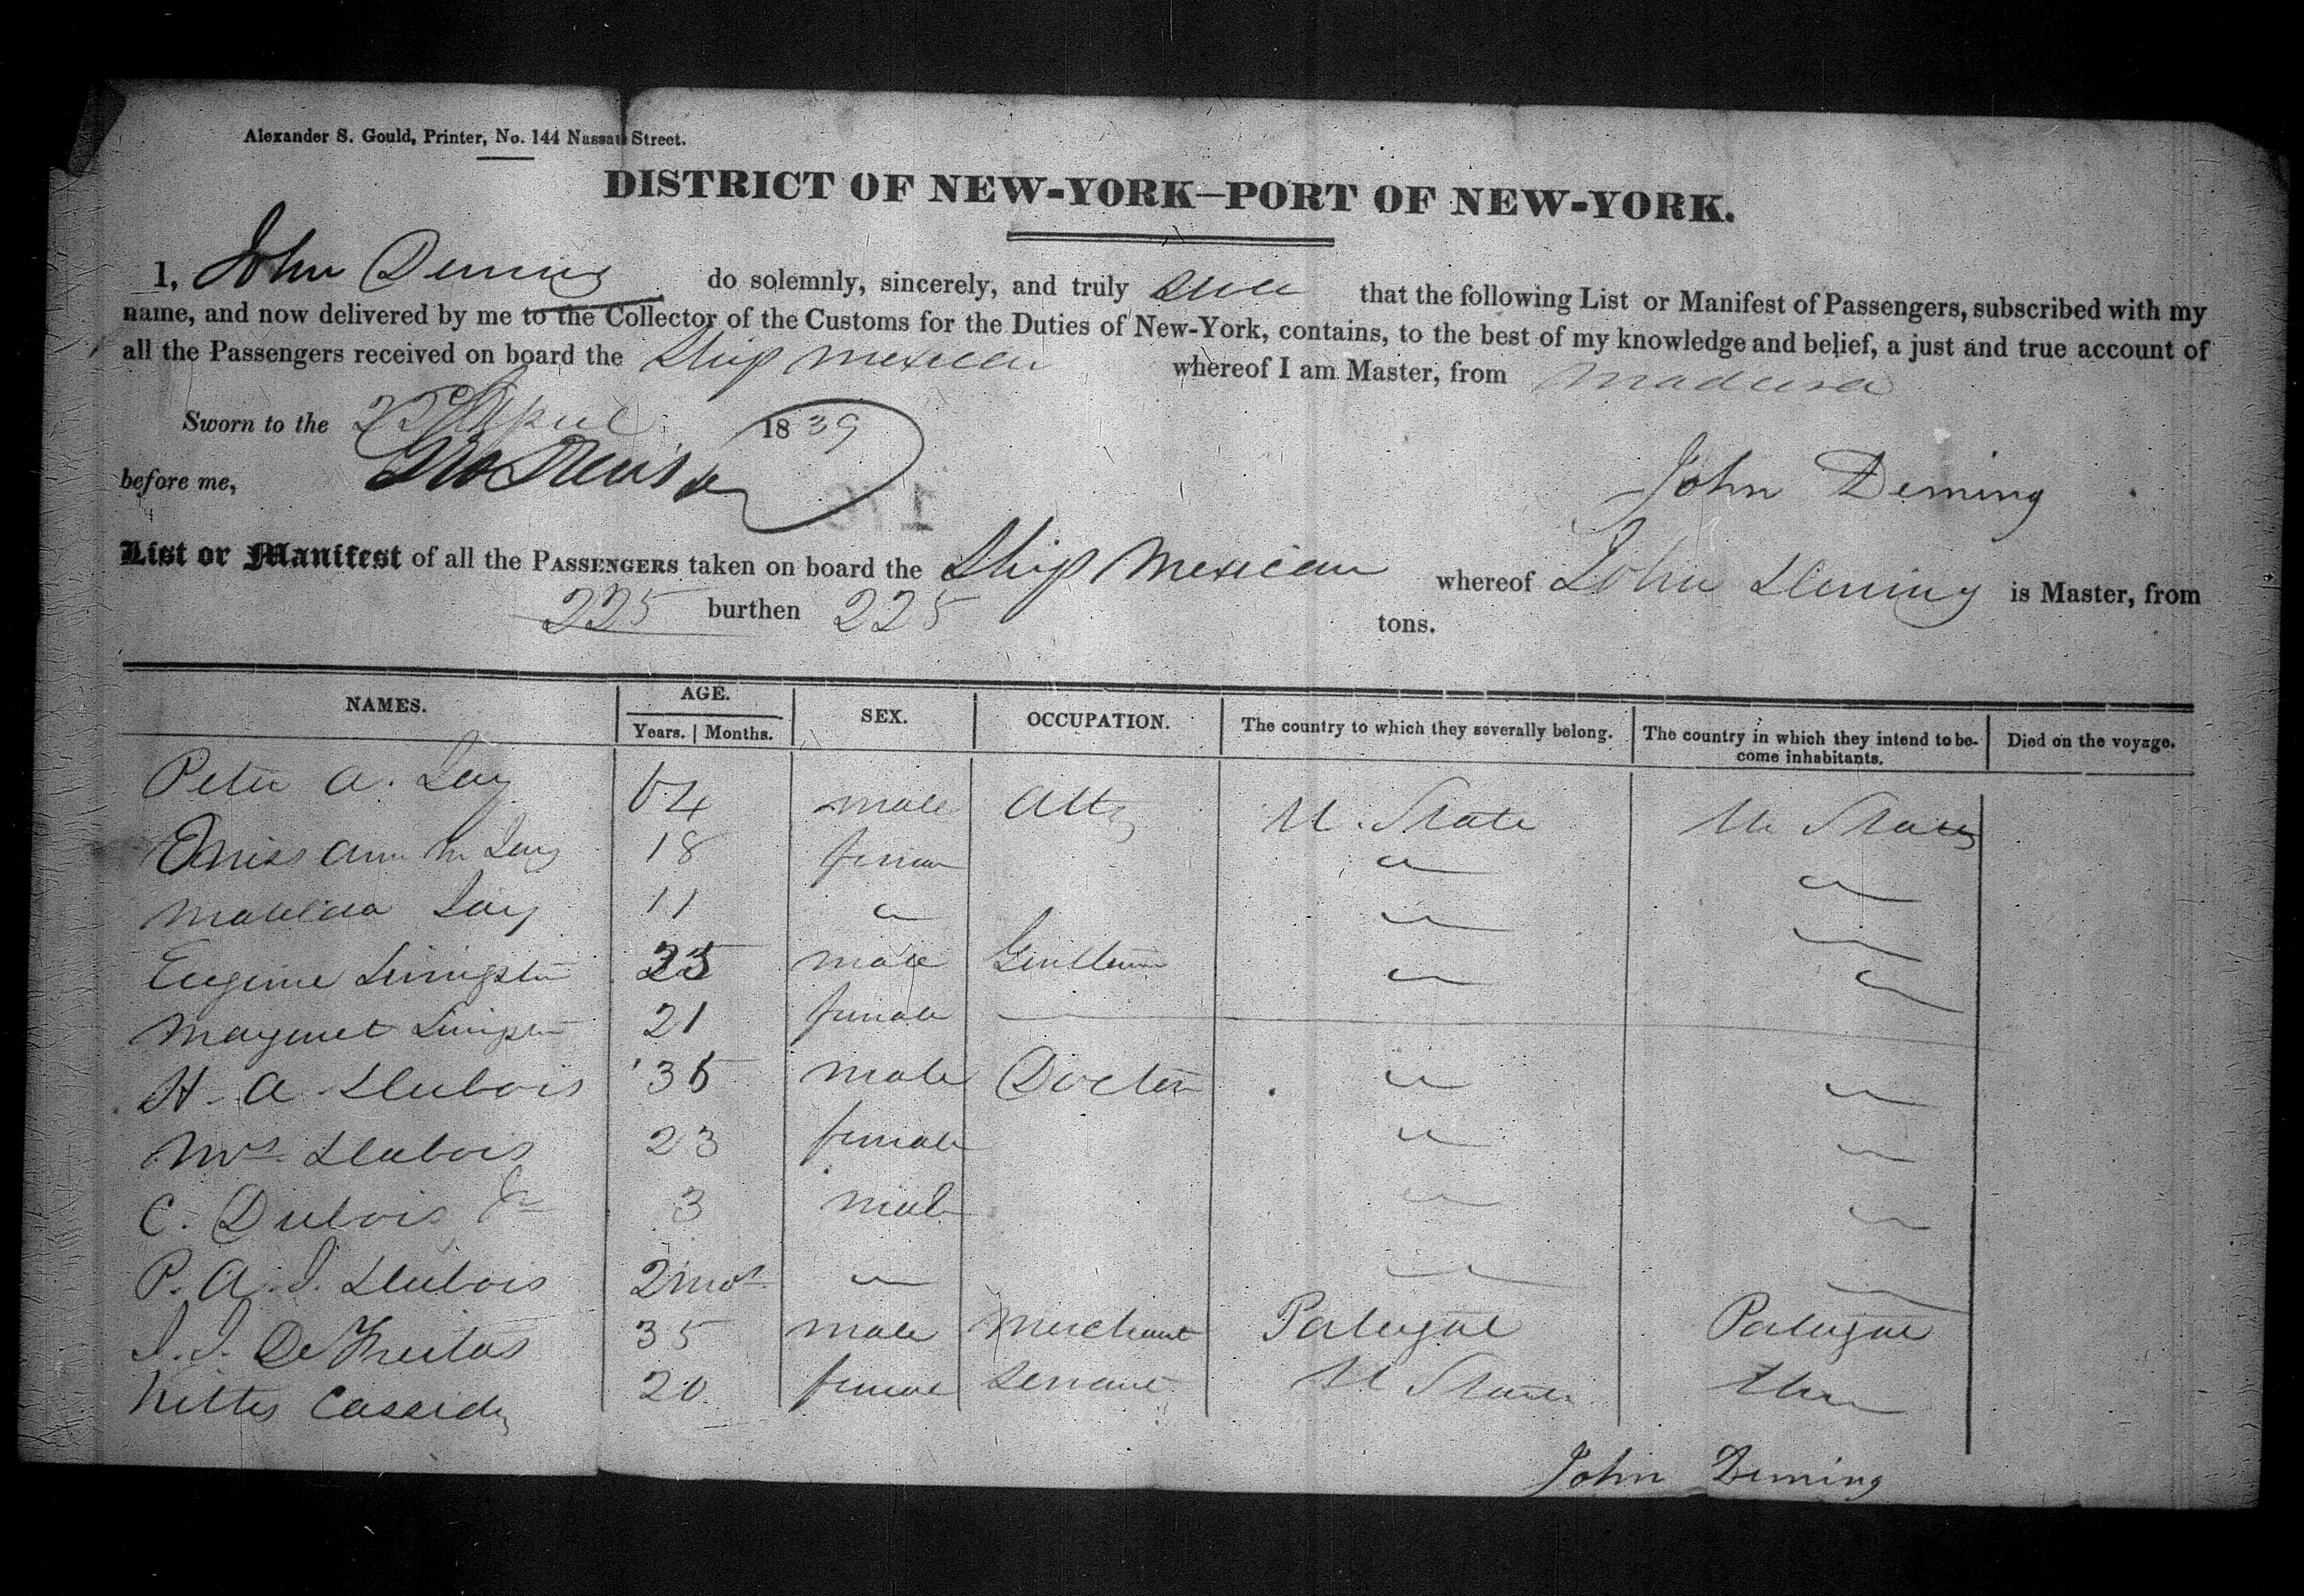 Alexander S. Gould, Printer, No. 144 Nassau Street.
DISTRICT OF NEW-YORK—PORT OF NEW-YORK.
I, John Deming do solemnly, sincerely, and truly that the following List or Manifest of Passengers, subscribed with my
name, and now delivered by me to the Collector of the Customs for the Duties of New-York, contains, to the best of my knowledge and belief, a just and true account of
all the Passengers received on board the Ship Mexican whereof I am Master, from Madeira
Sworn to the 25 April 1839
before me,
John Deming
List or Manifest of all the PASSENGERS taken on board the Ship Mexican whereof John Deming is Master, from
225 burthen 225 tons.
NAMES. AGE. SEX. OCCUPATION. The country to which they severally belong. The country in which they intend to be- Died on the voyage.
Years. | Months. come inhabitants.
Peter A. Jay 64 male Atty U. State U. States
Miss Ann M Jay 18 female "
Matilda Jay 11 " "
Eugene Livingston 25 male Gentleman " "
Margaret Livingston 21 female
H. A. Dubois 35 male Doctor " "
Mrs Dubois 23 female " "
C. Dubois Jr 3 male " "
P. A. J. Dubois 2 mos " "
J. J. De Freitas 35 male Merchant Portugal Portugal
Cassidy 20 female Servant U States
John Deming